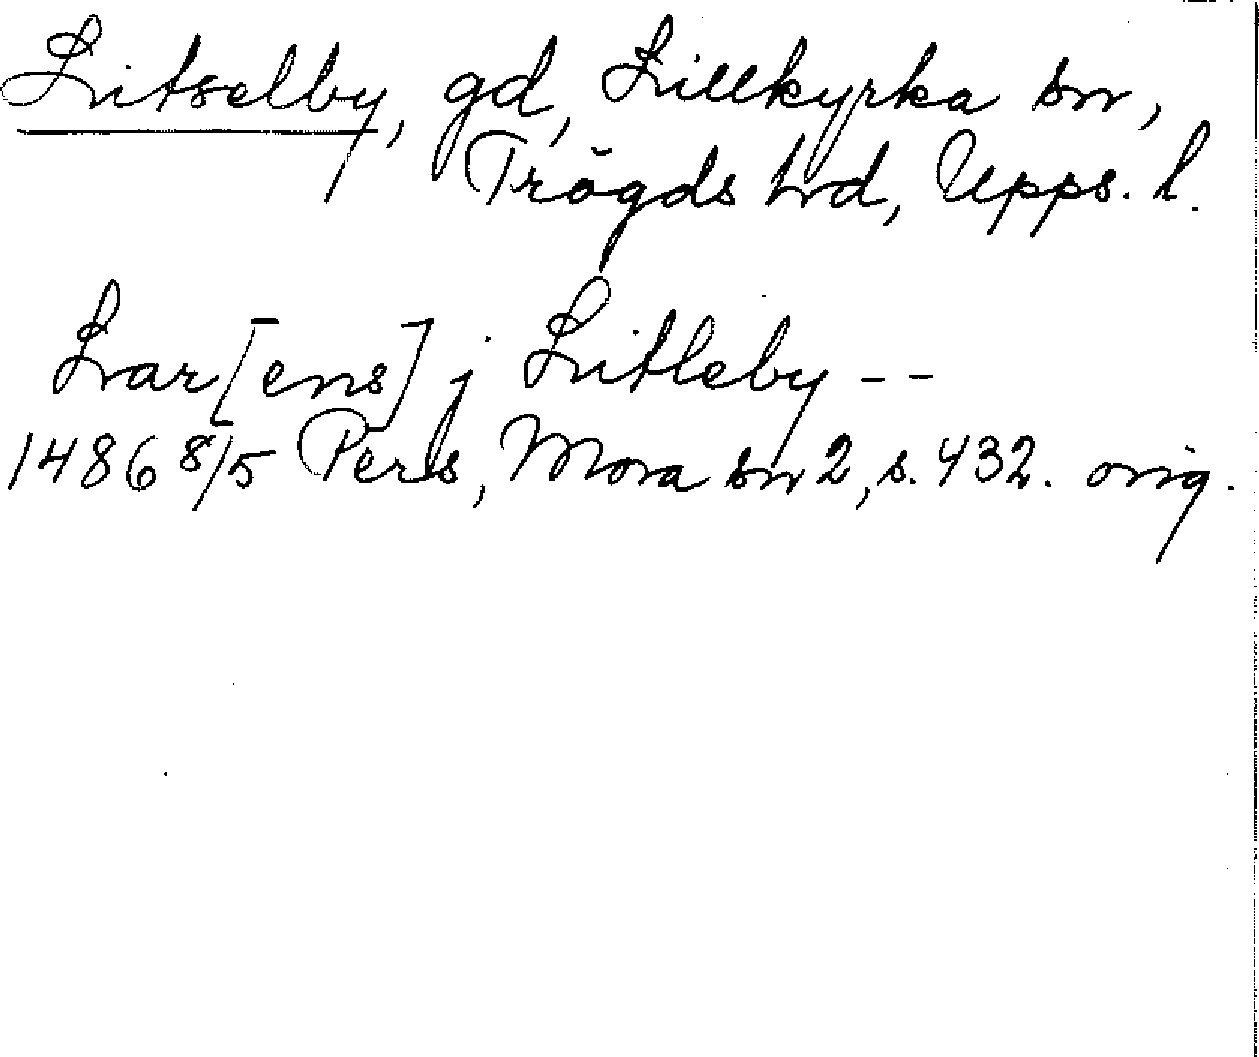 Litselby, gd, Lillkyrka sn,
Trögds hd, Upps. l.
Lar[ens] j Litleby --
1486 8/5 Pers, Mora sn 2, s. 432. orig.